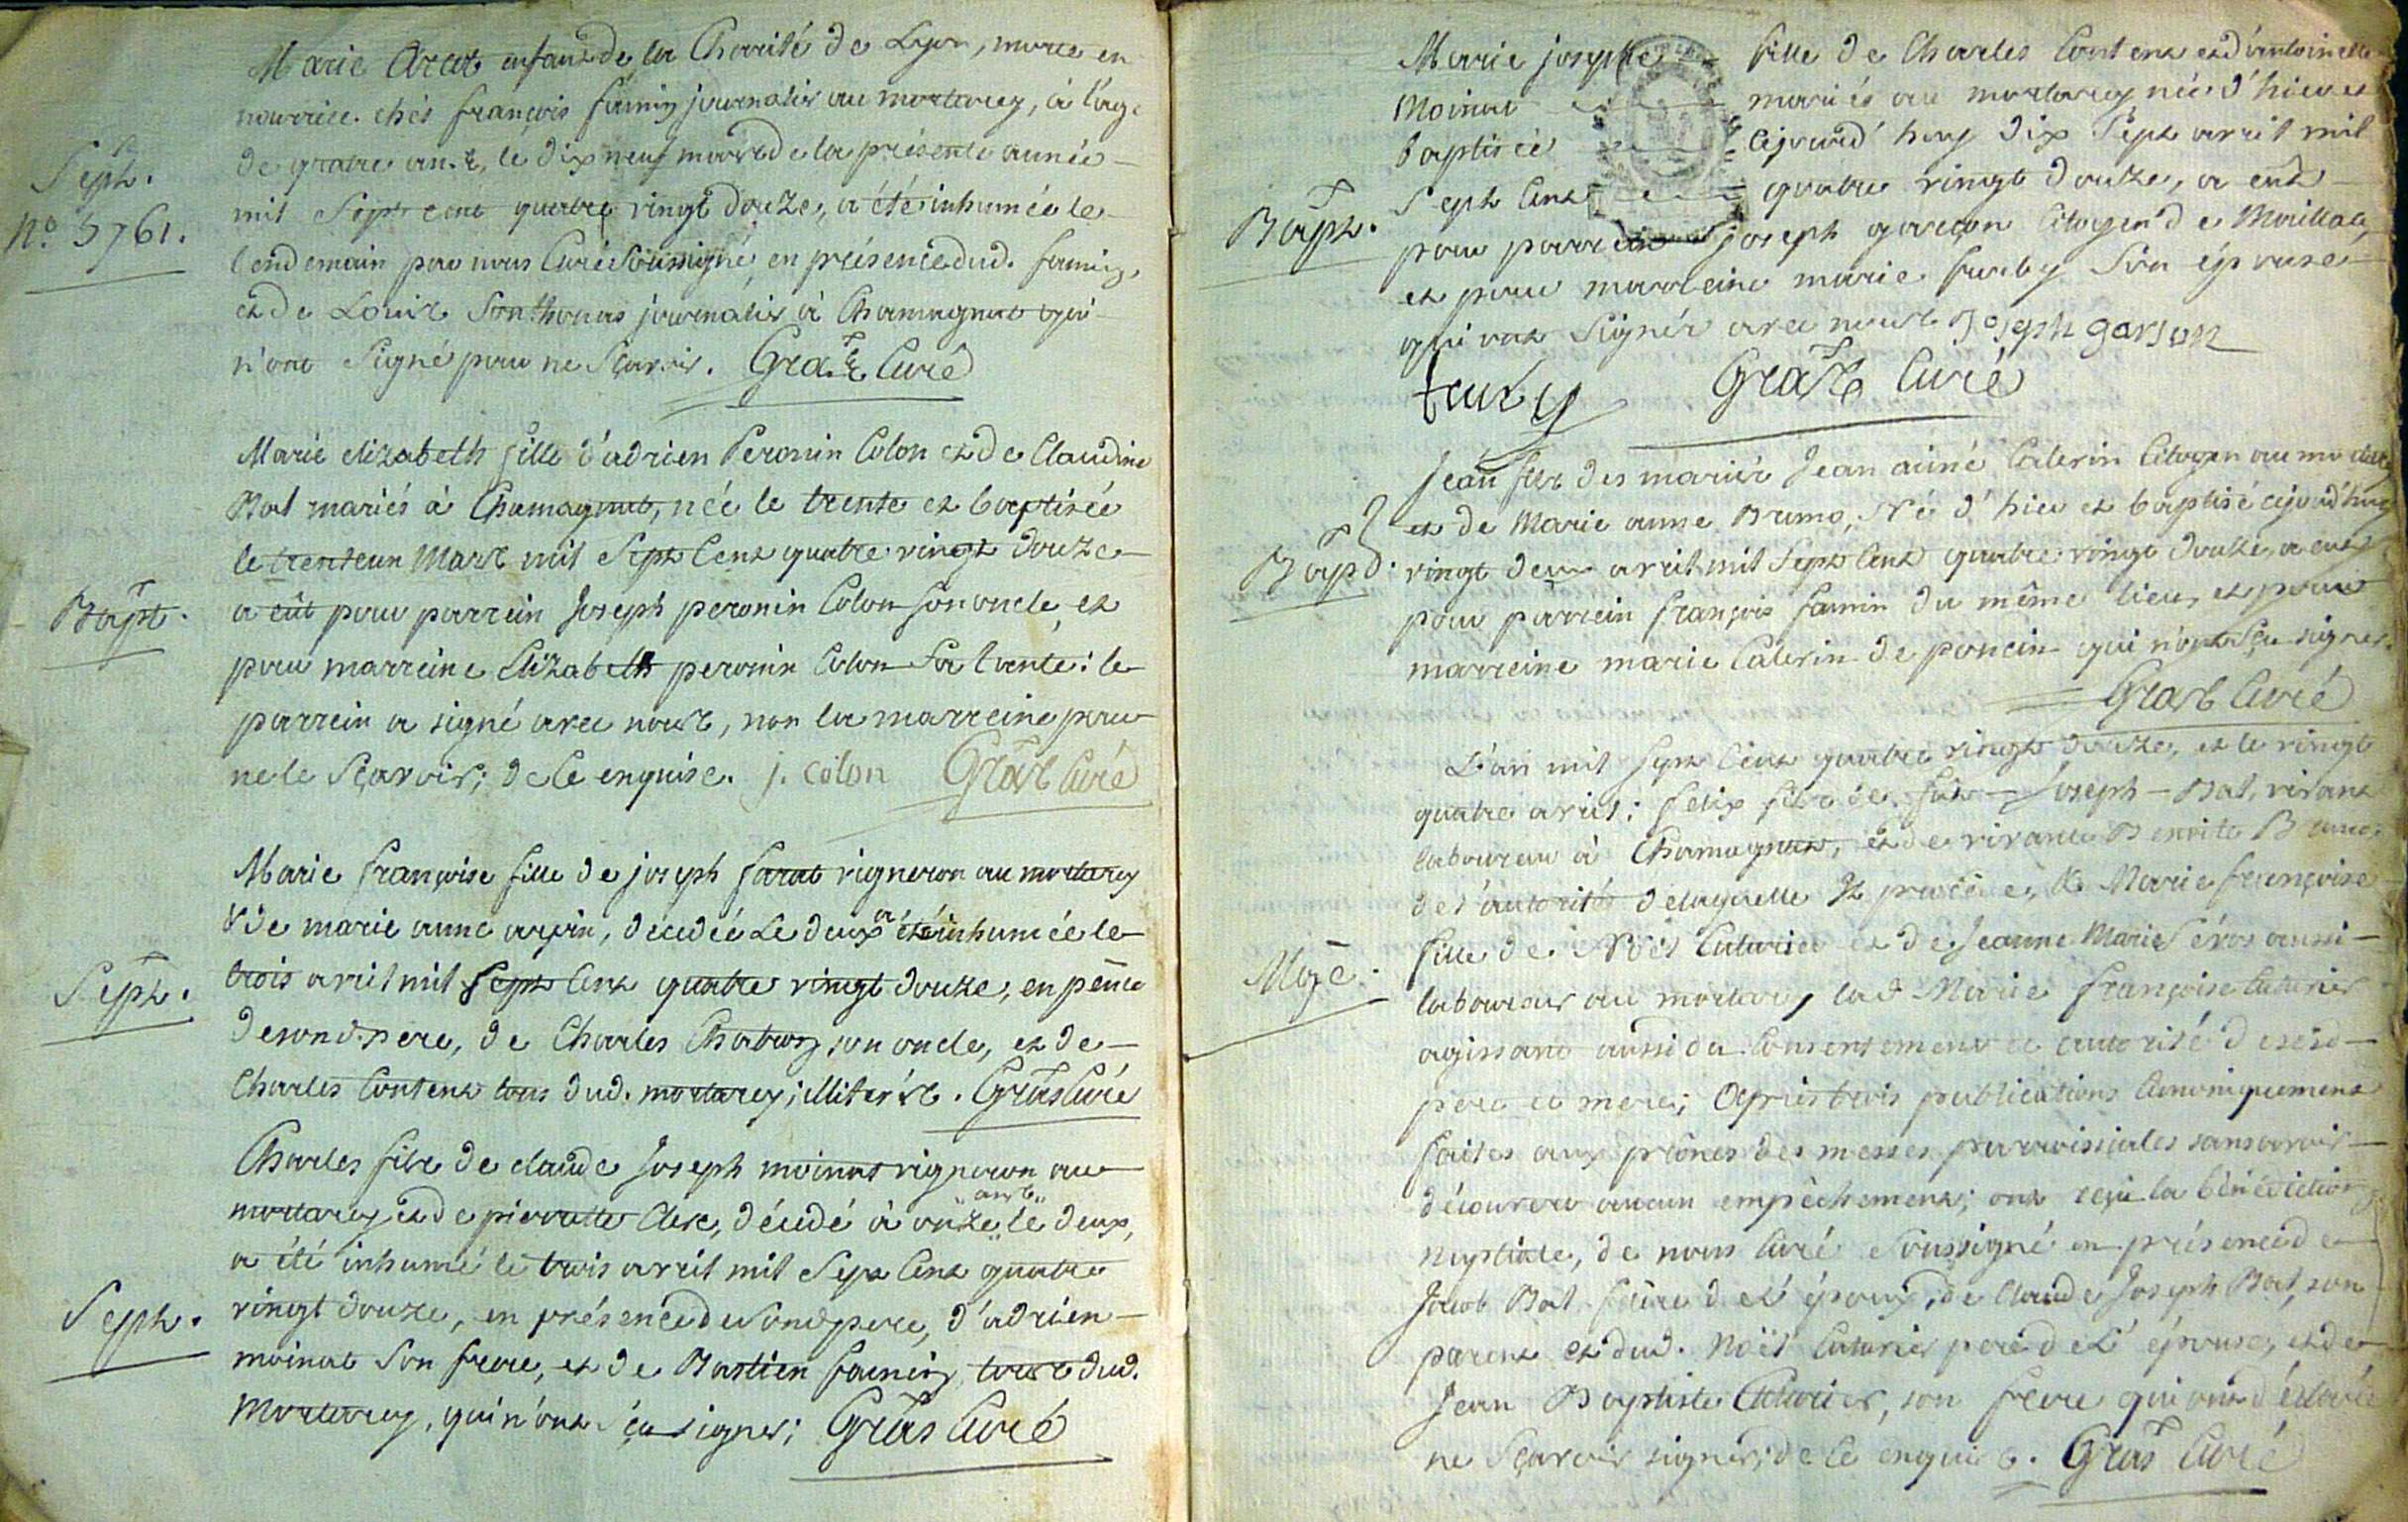 Marie Arcat enfant de la Charité de Lyon, morte en
nourrice chés françois famin journalier au mortarey, à l'age
de quatre ans, le dix neuf mars de la présente année
Sept.
mil Sept cent quatre vingt douze, a été inhumée le
N.º 5761.
lendemain par nous Curé Soussigné, en présence dud. faminy,
et de Louis Sonthonas journalier à Chamagnat qui
n'ont Signé pour ne Sçavoir. Gras Curé
Marie elizabeth fille d'adrien Peronin Colon et de Claudine
Bat mariés à Chamagnat, née le trente et baptisée
le trenteun Mars mil Sept Cent quatre vingt douze
Bapt.
a eût pour parrein Joseph peronin Colon son oncle, et
pour marreine Elizabeth peronin Colon Sa tante: le
parrein a signé avec nous, non la marreine pour
ne le Sçavoir; de ce enquise. j. colon Gras Curé
Marie françoise fille de joseph farat vigneron au mortarey
& de marie anne arpin, décédée Le deux a été inhumée le
Sept.
trois avril mil Sept Cent quatre vingt douze, en pnce
de sond. pere, de Charles Chabary son oncle, et de
Charles Content tous dud. mortarey; illiterés. Gras Curé
Charles fils de claude Joseph moinat vigneron au
mortarey et de pierrette Clerc, décédé à onze "ans" le deux,
a été inhumé le trois avril mil Sept Cent quatre
Sept.
vingt douze, en présence de Sond pere, d'adrien
moinat Son frere, et de Bastien faminy tous dud.
Mortarey, qui n'ont Sçu signer; Gras Curé
Marie josephe fille de Charles Content et d'antoinette
Moinat mariés au mortarey née d'hier et
baptisée cejourd'huy dix Sept avril mil
Sept Cent quatre vingt douze, a eut
Bapt.
pour parrein joseph garçon Citoyen de Maillat,
et pour marreine marie furby Son épouse
qui ont Signés avec nous Joseph garson
furby Gras Curé
Jean fils des mariés Jean aimé Caterin Citoyen au mortarey
et de Marie anne Bruno, Né d'hier et baptisé cejourd'huy
Bapt.
vingt deux avril mil Sept Cent quatre vingt douze, a eut
pour parrein françois famin du même lieu, et pour
marreine marie Caterin de poncin qui n'ont Sçu signer.
Gras Curé
L'an mil Sept Cent quatre vingt douze, et le vingt
quatre avril; felix fils de feu Joseph Bat, vivant
laboureur à Chamagnat, et de vivante Benoite
de l'autorité de laquelle il procède, & Marie françoise
Mge.
fille de Noël Cuturier et de Jeanne Marie aussi
laboureur au mortarey, lad Marie françoise Cuturier
agissant aussi du Consentement et autorité de sesd
pere et mere; Après trois publications Canoniquement
faites aux prônes des messes parroissiales sans avoir
découvert aucun empêchement; ont reçu la bénédiction
nuptiale, de nous Curé Soussigné en présence de
Jacob Bat frere de l'époux, de Claude Joseph Bat, son
parent et dud. Noël Cuturier pere de l'épouse, et de
Jean Baptiste Cuturier, son frere qui ont déclaré
ne Sçavoir signer, de ce enquis. Gras Curé